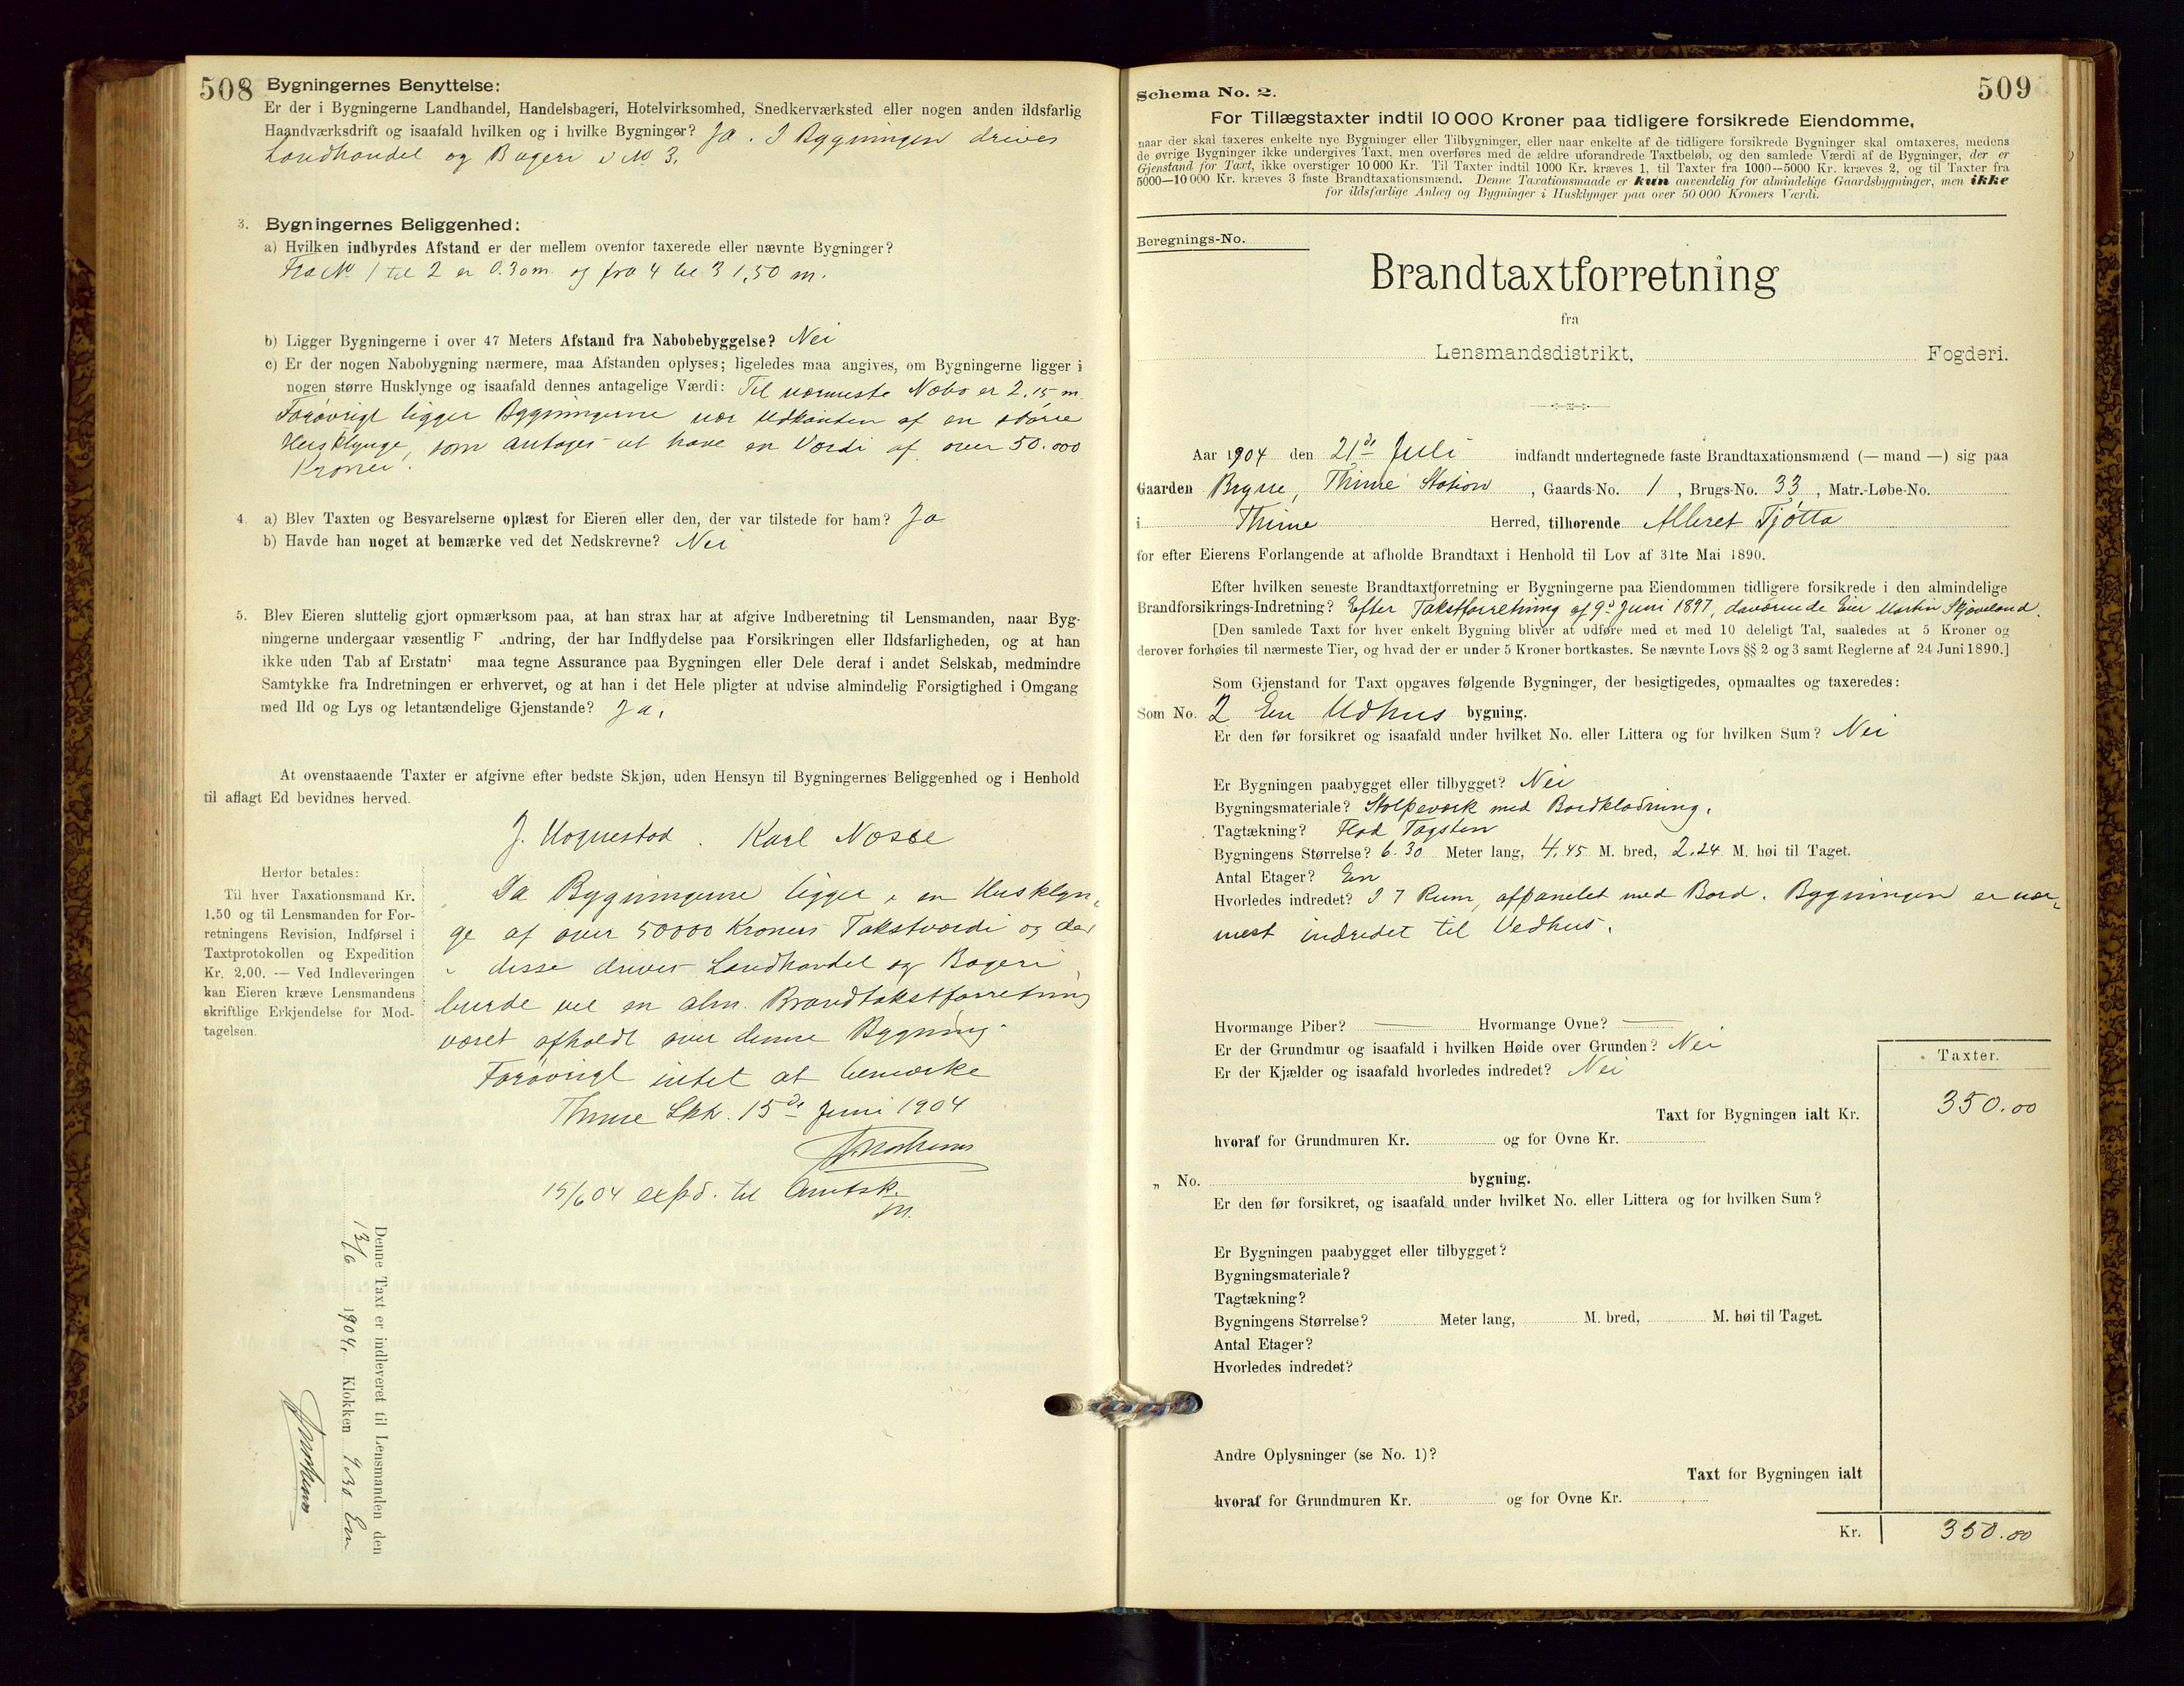 508
Bygningernes Benyttelse:
Er der i Bygningerne Landhandel, Handelsbageri, Hotelvirksomhed, Snedkerværksted eller nogen anden ildsfarlig
Haandværksdrift og isaafald hvilken og i hvilke Bygninger? Ja. I Bygningen drives
Landhandel og Bageri i No 3.
3. Bygningernes Beliggenhed:
a) Hvilken indbyrdes Afstand er der mellem ovenfor taxerede eller nævnte Bygninger?
Fra No 1 til 2 er 0.30 m. og fra 4 til 3 1,50 m.
b) Ligger Bygningerne i over 47 Meters Afstand fra Nabobebyggelse? Nei
c) Er der nogen Nabobygning nærmere, maa Afstanden oplyses; ligeledes maa angives, om Bygningerne ligger i
nogen større Husklynge og isaafald dennes antagelige Værdi: Til nærmeste Nabo er 2.15 m.
Forøvrigt ligger Bygningerne nær Udkanten af en større
Husklynge, som antages at have en Værdi af over 50.000
Kroner.
4. a) Blev Taxten og Besvarelserne oplæst for Eieren eller den, der var tilstede for ham? Ja
b) Havde han noget at bemærke ved det Nedskrevne? Nei
5. Blev Eieren sluttelig gjort opmærksom paa, at han strax har at afgive Indberetning til Lensmanden, naar Byg-
ningerne undergaar væsentlig F andring, der har Indflydelse paa Forsikringen eller Ildsfarligheden, og at han
ikke uden Tab af Erstatn maa tegne Assurance paa Bygningen eller Dele deraf i andet Selskab, medmindre
Samtykke fra Indretningen er erhvervet, og at han i det Hele pligter at udvise almindelig Forsigtighed i Omgang
med Ild og Lys og letantændelige Gjenstande? Ja.
At ovenstaaende Taxter er afgivne efter bedste Skjøn, uden Hensyn til Bygningernes Beliggenhed og i Henhold
til aflagt Ed bevidnes herved.
J. Hognestad. Karl Næsse
Herfor betales:
Til hver Taxationsmand Kr.
1.50 og til Lensmanden for For-
retningens Revision, Indførsel i
Taxtprotokollen og Expedition
Kr. 2.00. — Ved Indleveringen
kan Eieren kræve Lensmandens
skriftlige Erkjendelse for Mod-
tagelsen.
Da Bygningerne ligger i en Husklyn-
ge af over 50000 Kroners Takstværdi og der
i disse drives Landhandel og Bageri,
burde vel en alm. Brandtakstforretning
været afholdt over denne Bygning.
Forøvrigt intet at bemærke
Thime Lkk. 15de Juni 1904
15/6 04 expd. til Amtsk.
Denne Taxt er indleveret til Lensmanden den
13/6 1904, Klokken 9.30 Em
509
Schema No. 2.
For Tillægstaxter indtil 10 000 Kroner paa tidligere forsikrede Eiendomme,
naar der skal taxeres enkelte nye Bygninger eller Tilbygninger, eller naar enkelte af de tidligere forsikrede Bygninger skal omtaxeres, medens
de øvrige Bygninger ikke undergives Taxt, men overføres med de ældre uforandrede Taxtbeløb, og den samlede Værdi af de Bygninger, der er
Gjenstand for Taxt, ikke overstiger 10 000 Kr. Til Taxter indtil 1000 Kr. kræves 1, til Taxter fra 1000—5000 Kr. kræves 2, og til Taxter fra
5000—10 000 Kr. kræves 3 faste Brandtaxationsmænd. Denne Taxationsmaade er kun anvendelig for almindelige Gaardsbygninger, men ikke
for ildsfarlige Anlæg og Bygninger i Husklynger paa over 50 000 Kroners Værdi.
Beregnings-No.
Brandtaxtforretning
fra
Lensmandsdistrikt, Fogderi.
Aar 1904 den 21de Juli indfandt undertegnede faste Brandtaxationsmænd (— mand —) sig paa
Gaarden Bryne, Thime Station, Gaards-No. 1, Brugs-No. 33, Matr.-Løbe-No.
i Thime Herred, tilhørende Albret Tjøtta
for efter Eierens Forlangende at afholde Brandtaxt i Henhold til Lov af 31te Mai 1890.
Efter hvilken seneste Brandtaxtforretning er Bygningerne paa Eiendommen tidligere forsikrede i den almindelige
Brandforsikrings-Indretning? Efter Takstforretning af 9d Juni 1897, daværende Eier Martin Skjæveland.
[Den samlede Taxt for hver enkelt Bygning bliver at udføre med et med 10 deleligt Tal, saaledes at 5 Kroner og
derover forhøies til nærmeste Tier, og hvad der er under 5 Kroner bortkastes. Se nævnte Lovs §§ 2 og 3 samt Reglerne af 24 Juni 1890.]
Som Gjenstand for Taxt opgaves følgende Bygninger, der besigtigedes, opmaaltes og taxeredes:
Som No. 2 En Udhus bygning.
Er den før forsikret og isaafald under hvilket No. eller Littera og for hvilken Sum? Nei
Er Bygningen paabygget eller tilbygget? Nei
Bygningsmateriale? Stolpeverk med Bordklædning.
Tagtækning? Flad Tagsten
Bygningens Størrelse? 6.30 Meter lang, 4.45 M. bred, 2.24 M. høi til Taget.
Antal Etager? En
Hvorledes indredet? I 7 Rum, afpanelet med Bord. Bygningen er nær-
mest indredet til Vedhus.
Hvormange Piber? — Hvormange Ovne? —
Er der Grundmur og isaafald i hvilken Høide over Grunden? Nei
Er der Kjælder og isaafald hvorledes indredet? Nei
Taxter.
Taxt for Bygningen ialt Kr. 350.00
hvoraf for Grundmuren Kr. og for Ovne Kr.
„ No. bygning.
Er den før forsikret, og isaafald under hvilket No. eller Littera og for hvilken Sum?
Er Bygningen paabygget eller tilbygget?
Bygningsmateriale?
Tagtækning?
Bygningens Størrelse? Meter lang, M. bred, M. høi til Taget.
Antal Etager?
Hvorledes indredet?
Andre Oplysninger (se No. 1)?
Taxt for Bygningen ialt
hvoraf for Grundmuren Kr. og for Ovne Kr.
Kr. 350.00